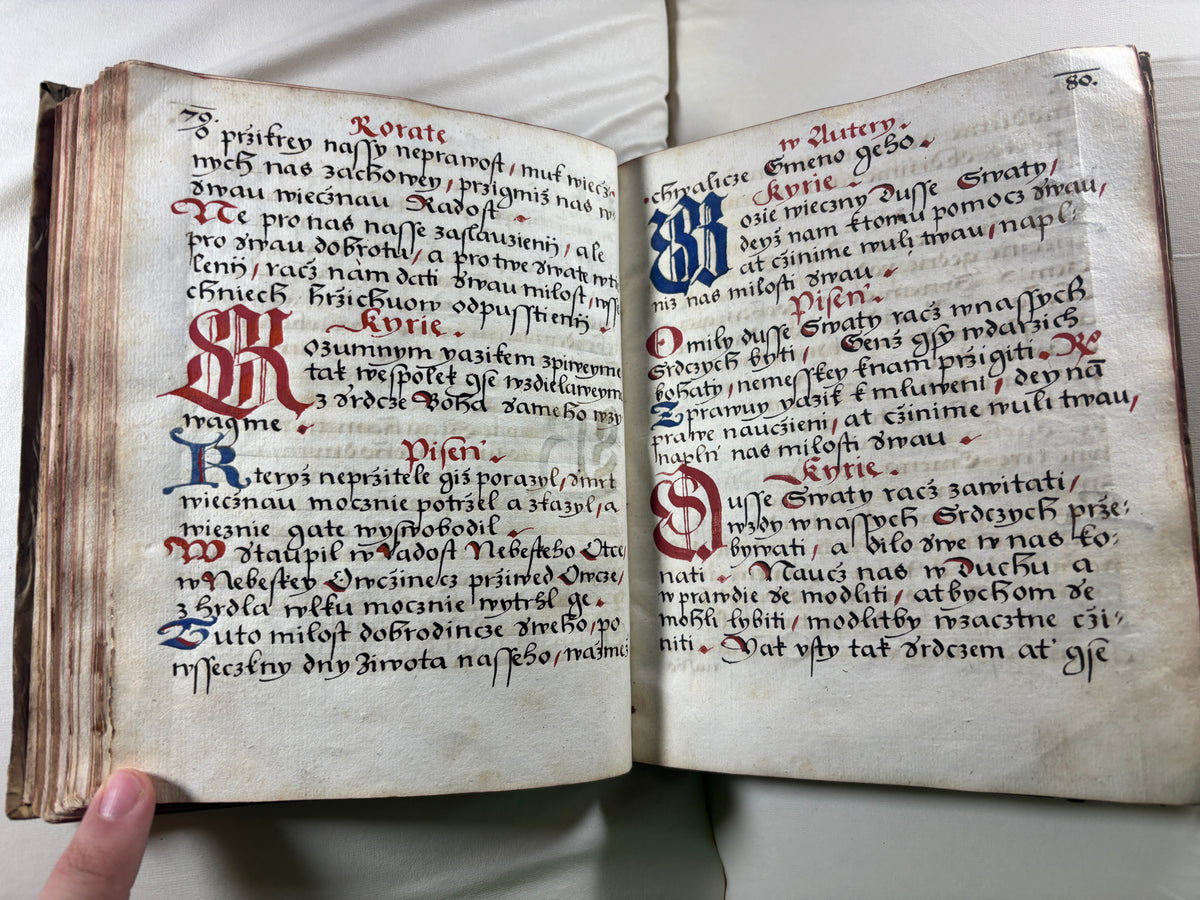 79.
Rorate
přikrey nassy neprawost, muk wiecż-
nych nas zachowey, przigmiž nas w
swau wiecżnau Radost.
Ne pro nas nasse zaslauzienij, ale
pro swau dobrotu, a pro twe swate wtie
lenij, racż nam dati swau milost, wsse
chniech hržichuow odpusstienij.
Kyrie.
Rozumnym yazikem zpiweyme
tak wespolek gse wzdielaweym
z srdcze Boha sameho wzy
wagme.
Piseň.
Kteryž nepržitele giž porazyl, smrt
wiecżnau mocznie potržel a zkazyl, a
wieznie gate wyswobodil.
Wstaupil w Radost Nebeskeho Otce,
w Nebeskey Owcżinecz prziwed Owcze,
z hrdla wlku mocznie wytrhl ge.
Tuto milost dobrodincze sweho, po
wsseczkny dny života nasseho, wažme
80.
w Autery.
chwalicze Gmeno geho.
Kyrie.
Božie wieczny Dusse Swaty,
deyž nam ktomu pomocz swau,
ať cżinime wuli twau, napl-
niž nas milosti swau.
Piseň.
O mily dusse Swaty racż wnassych
Srdczych byti, Genž gsy wdarzich
bohaty, nemesskey knam pržigiti. Rx
Zprawuy yazik k mluweni, dey nā
prawe naucżieni, ať cżinime wuli twau,
naplň nas milosti swau.
Kyrie.
Dusse Swaty racż zawitati,
wzdy wnassych Srdczych prže-
bywati, a dilo swe w nas ko-
nati. Naucż nas w Duchu a
w prawdie se modliti, atbychom se
mohli lybiti, modlitby wzacztne cži-
niti. Yak vsty tak srdczem ať gse